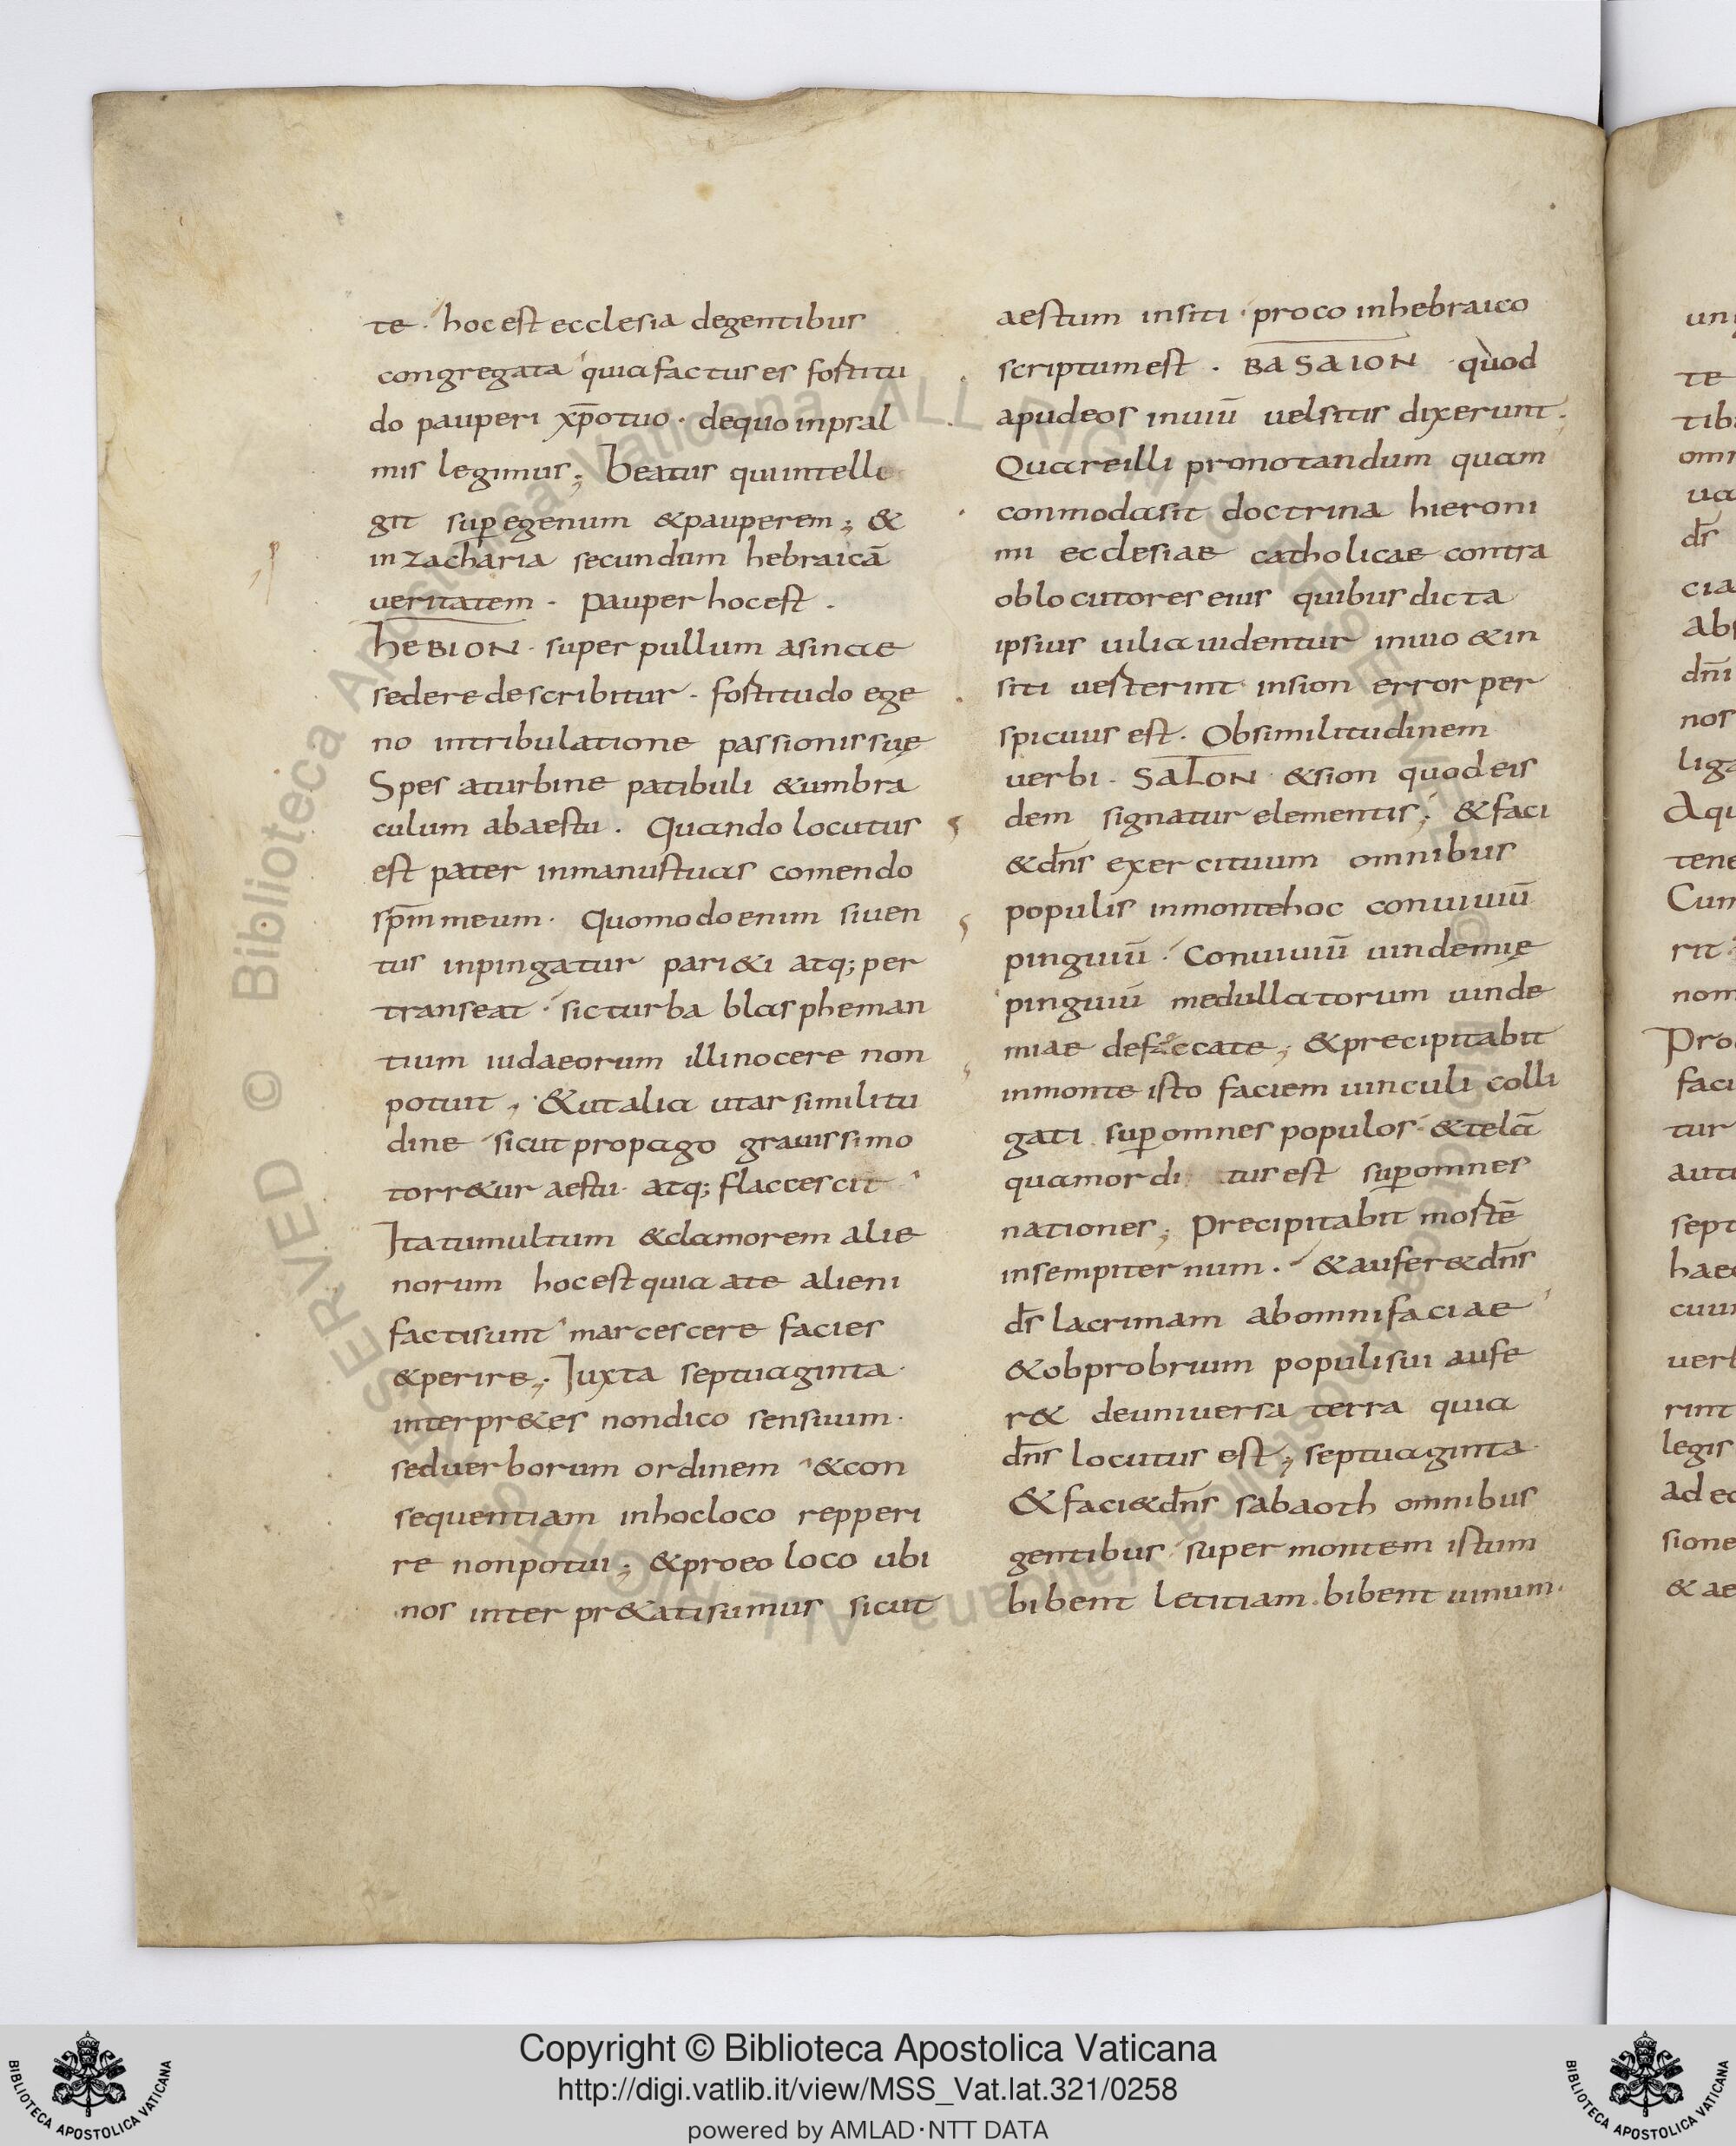 te · hoc est ecclesia degentibus
congregata quia factus es fortitu
do pauperi xp̄o tuo · de quo in psal
mis legimus; Beatus qui intelle
git sup egenum & pauperem; &
in zacharia secundum hebraicā
ueritatem · pauper hoc est ·
heBION · super pullum asinae
sedere describitur · fortitudo ege
no in tribulatione passionis suę
Spes a turbine patibuli & umbra
culum ab aestu · Quando locutus
est pater in manus tuas comendo
sp̄m meum · Quomodo enim si uen
tus inpingatur pari&i atq; per
transeat · sic turba blaspheman
tium iudaeorum illi nocere non
potuit; & ut alia utar similitu
dine sicut propago grauissimo
torr&ur aestu · atq; flaccescit
Ita tumultum & clamorem alie
norum hoc est qui a te alieni
facti sunt marcescere facies
& perire; Iuxta septuaginta
interpr&es non dico sensuum ·
sed uerborum ordinem & con
sequentiam in hoc loco repperi
re non potui; & pro eo loco ubi
nos interpr&ati sumus sicut
aestum in siti · pro co in hebraico
scriptum est · BASAION · quod
apud eos inuiū uel sitis dixerunt;
Qua re illi pronotandum quam
conmoda sit doctrina hieroni
mi ecclesiae catholicae contra
oblocutores eius quibus dicta
ipsius uilia uidentur inuio & in
siti uesterint in sion error per
spicuus est · Ob similitudinem
uerbi · SALON & sion quod eis
dem signatur elementis; & faci
& dn̄s exercituum omnibus
populis in monte hoc conuiuiū
pinguiū · Conuiuiū uindemię
pinguiū medullatorum uinde
miae defeccate; & precipitabit
in monte isto faciem uinculi colli
gati sup omnes populos & telā
quam ordi tus est sup omnes
nationes; Precipitabit mortē
in sempiternum · & aufer& dn̄s
d̄s lacrimam ab omni faciae
& obprobrium populi sui aufe
r& de uniuersa terra quia
dn̄s locutus est; septuaginta
& faci& dn̄s sabaoth omnibus
gentibus super montem istum
bibent letitiam · bibent uinum ·
un
te
tib
om
ua
d̄s
cia
Abs
dn̄i
nos
liga
Aqu
tene
Cum
rit
nom
Pro
faci
tur
aut
sept
hae
cuiu
uerb
rint
legis
ad eo
sione
& ae
© Biblioteca Apostolica Vaticana ALL RIGHTS RESERVED
Copyright © Biblioteca Apostolica Vaticana
http://digi.vatlib.it/view/MSS_Vat.lat.321/0258
powered by AMLAD·NTT DATA
BIBLIOTECA APOSTOLICA VATICANA
BIBLIOTECA APOSTOLICA VATICANA